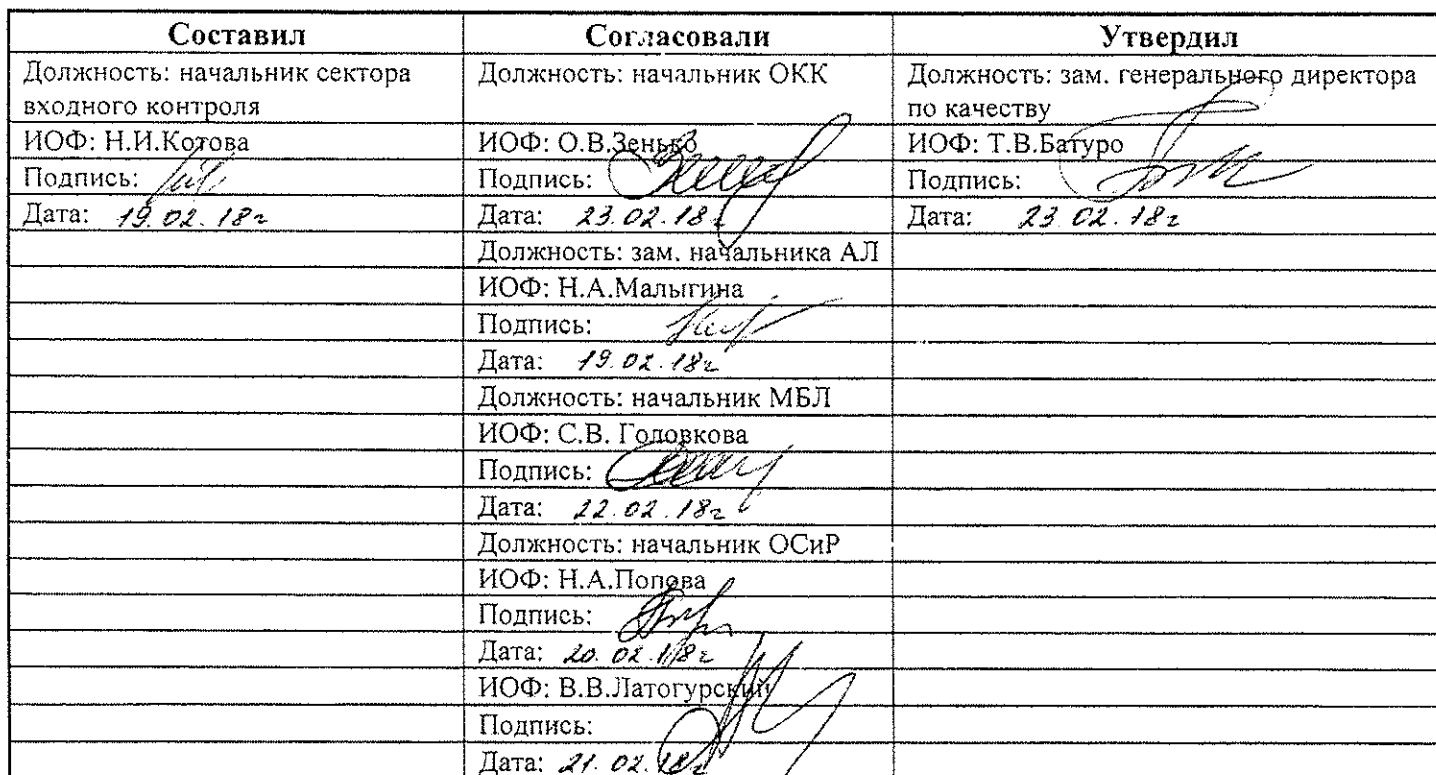 Составил Согласовали Утвердил
Должность: начальник сектора Должность: начальник ОКК Должность: зам. генерального директора
входного контроля по качеству
ИОФ: Н.И.Котова ИОФ: О.В.Зенько ИОФ: Т.В.Батуро
Подпись: Подпись: Подпись:
Дата: 19.02.18г Дата: 23.02.18г Дата: 23.02.18г
Должность: зам. начальника АЛ
ИОФ: Н.А.Малыгина
Подпись:
Дата: 19.02.18г
Должность: начальник МБЛ
ИОФ: С.В. Головкова
Подпись:
Дата: 22.02.18г
Должность: начальник ОСиР
ИОФ: Н.А.Попова
Подпись:
Дата: 20.02.18г
ИОФ: В.В.Латогурский
Подпись:
Дата: 21.02.18г